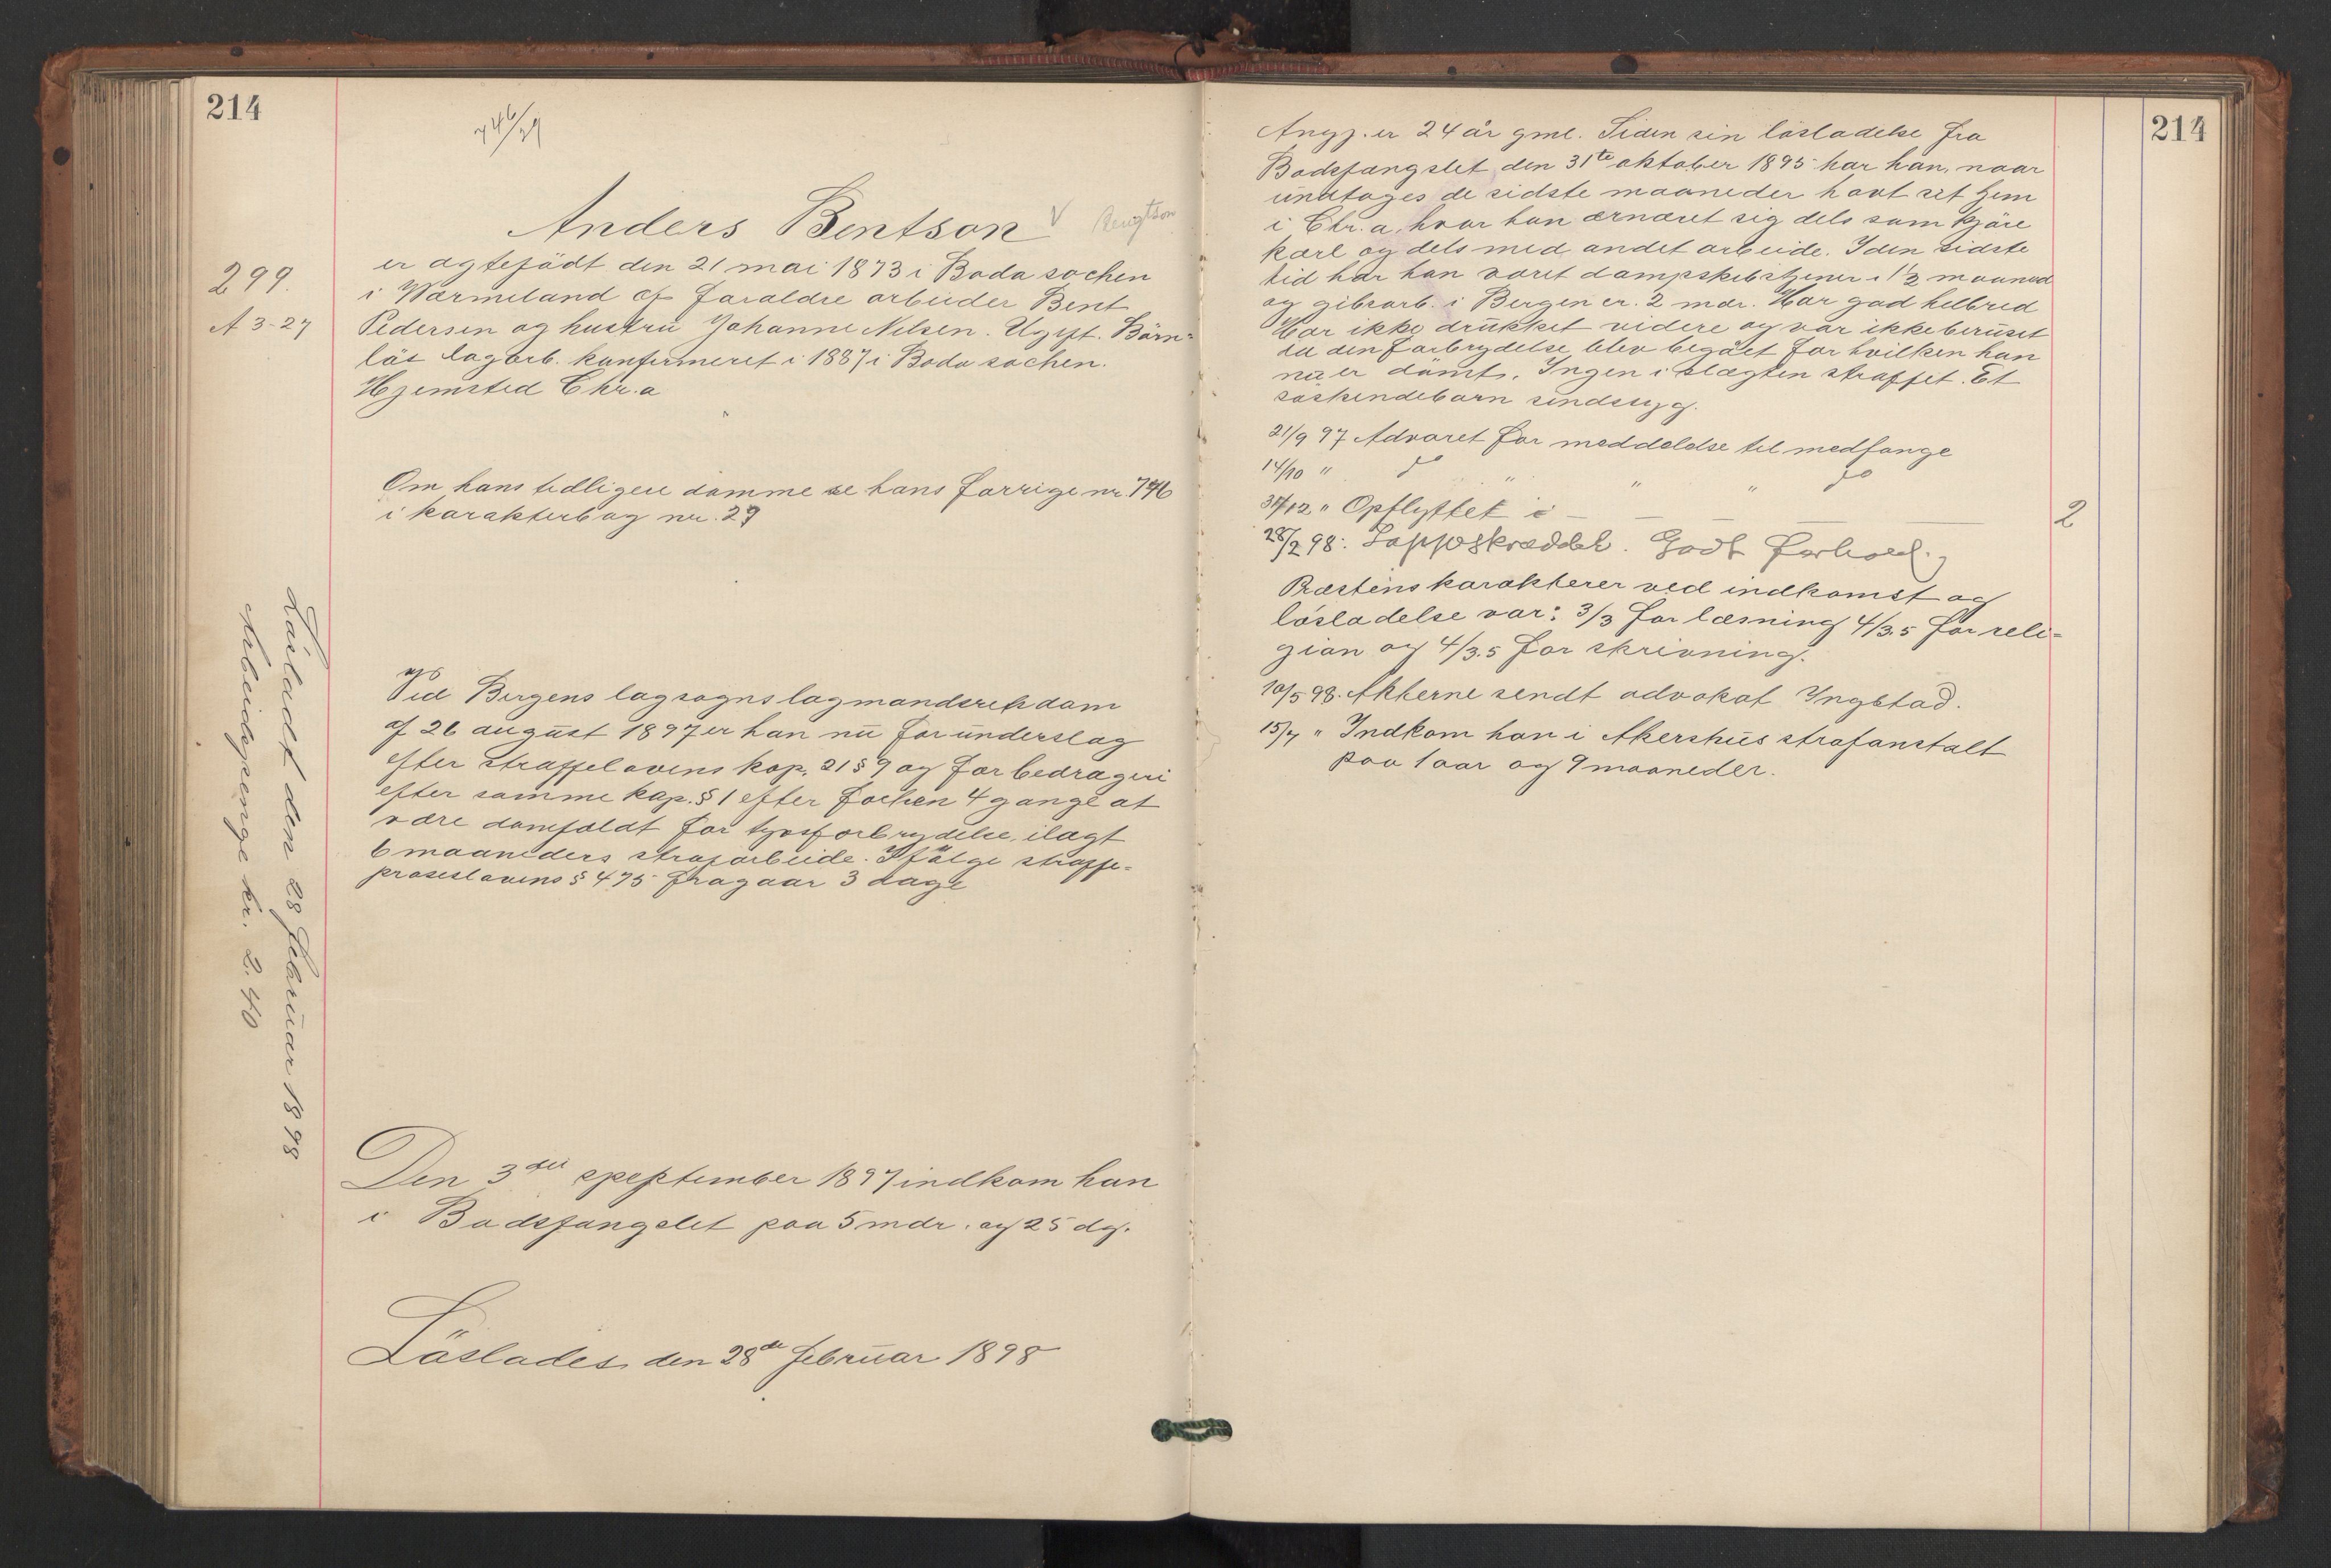 214
746/29
Anders Bentson V Bengtson
299.
A 3-27
er ægtefödt den 21 mai 1873 i Boda sochen
i Wærmeland af forældre arbeider Bent
Pedersen og hustru Johanne Nelsen. Ugift. Börn-
lös lagarb. konfirmeret i 1887 i Boda sochen.
Hjemsted Chr.a
Om hans tidligere domme se hans forrige nr 746
i karakterbog nr. 29
Ved Bergens lagsogns lagmandsrets dom
af 26 august 1897 er han nu for underslag
efter straffelovens kap. 21 § 9 og for bedrageri
efter samme kap. § 1 efter forhen 4 gange at
være domfældt for tyvsforbrydelse, ilagt
6 maaneders strafarbeide. Ifölge straffe-
proseslovens § 475 fragaar 3 dage
Lösladt den 28 februar 1898
Arbeidspenge kr. 2.40
Den 3die september 1897 indkom han
i Bodsfængslet paa 5 mdr. og 25 dg.
Löslades den 28de februar 1898
214
Angj. er 24 år gml. Siden sin lösladelse fra
Bodsfængslet den 31te oktober 1895 har han, naar
undtages de sidste maaneder havt sit hjem
i Chr.a, hvor han ernæret sig dels som kjöre
karl og dels med andet arbeide. I den sidste
tid har han været dampskibstjener i 1½ maaned
og gibsarb. i Bergen cr. 2 mdr. Har god helbred
Har ikke drukket videre og var ikke beruset
da den forbrydelse blev begået for hvilken han
nu er dömt. Ingen i slægten straffet. Et
söskendebarn sindssyg.
21/9 97 Advaret for meddelelse til medfange
14/10 " do " " " do
31/12 " Opflyttet i — — — — — 2
28/2 98: Lappeskrædder. Godt Forhold.
Præstens karakterer ved indkomst og
lösladelse var: 3/3 for læsning 4/3.5 for reli-
gion og 4/3.5 for skrivning.
10/5 98. Akterne sendt advokat Yngstad.
15/7 " Indkom han i Akershus strafanstalt
paa 1 aar og 9 maaneder.